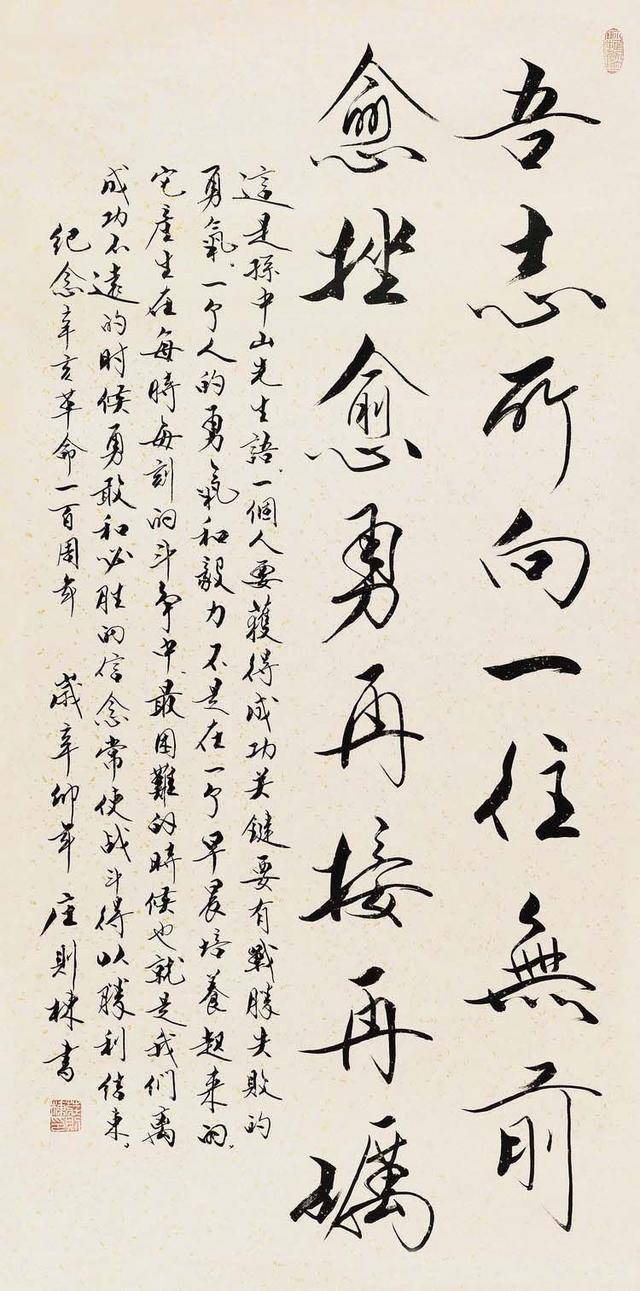 吾志所向一往無前
愈挫愈勇再接再礪
這是孫中山先生語.一個人要獲得成功关鍵要有戰勝失敗的
勇氣.一个人的勇氣和毅力不是在一个早晨培養起来的.
它產生在每時每刻的斗争中.最困難的時候也就是我们离
成功不遠的时候勇敢和必胜的信念常使战斗得以勝利结束.
纪念辛亥革命一百周年 歲辛卯年 庄則棟書